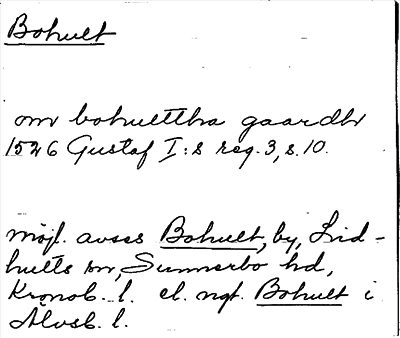 Bohult
om bohulttha gaardh
1526 Gustaf I:s reg. 3, s. 10.
möjl. avses Bohult, by, Lid-
hults sn, Sunnerbo hd,
Kronob. l. el. ngt. Bohult i
Älvsb. l.